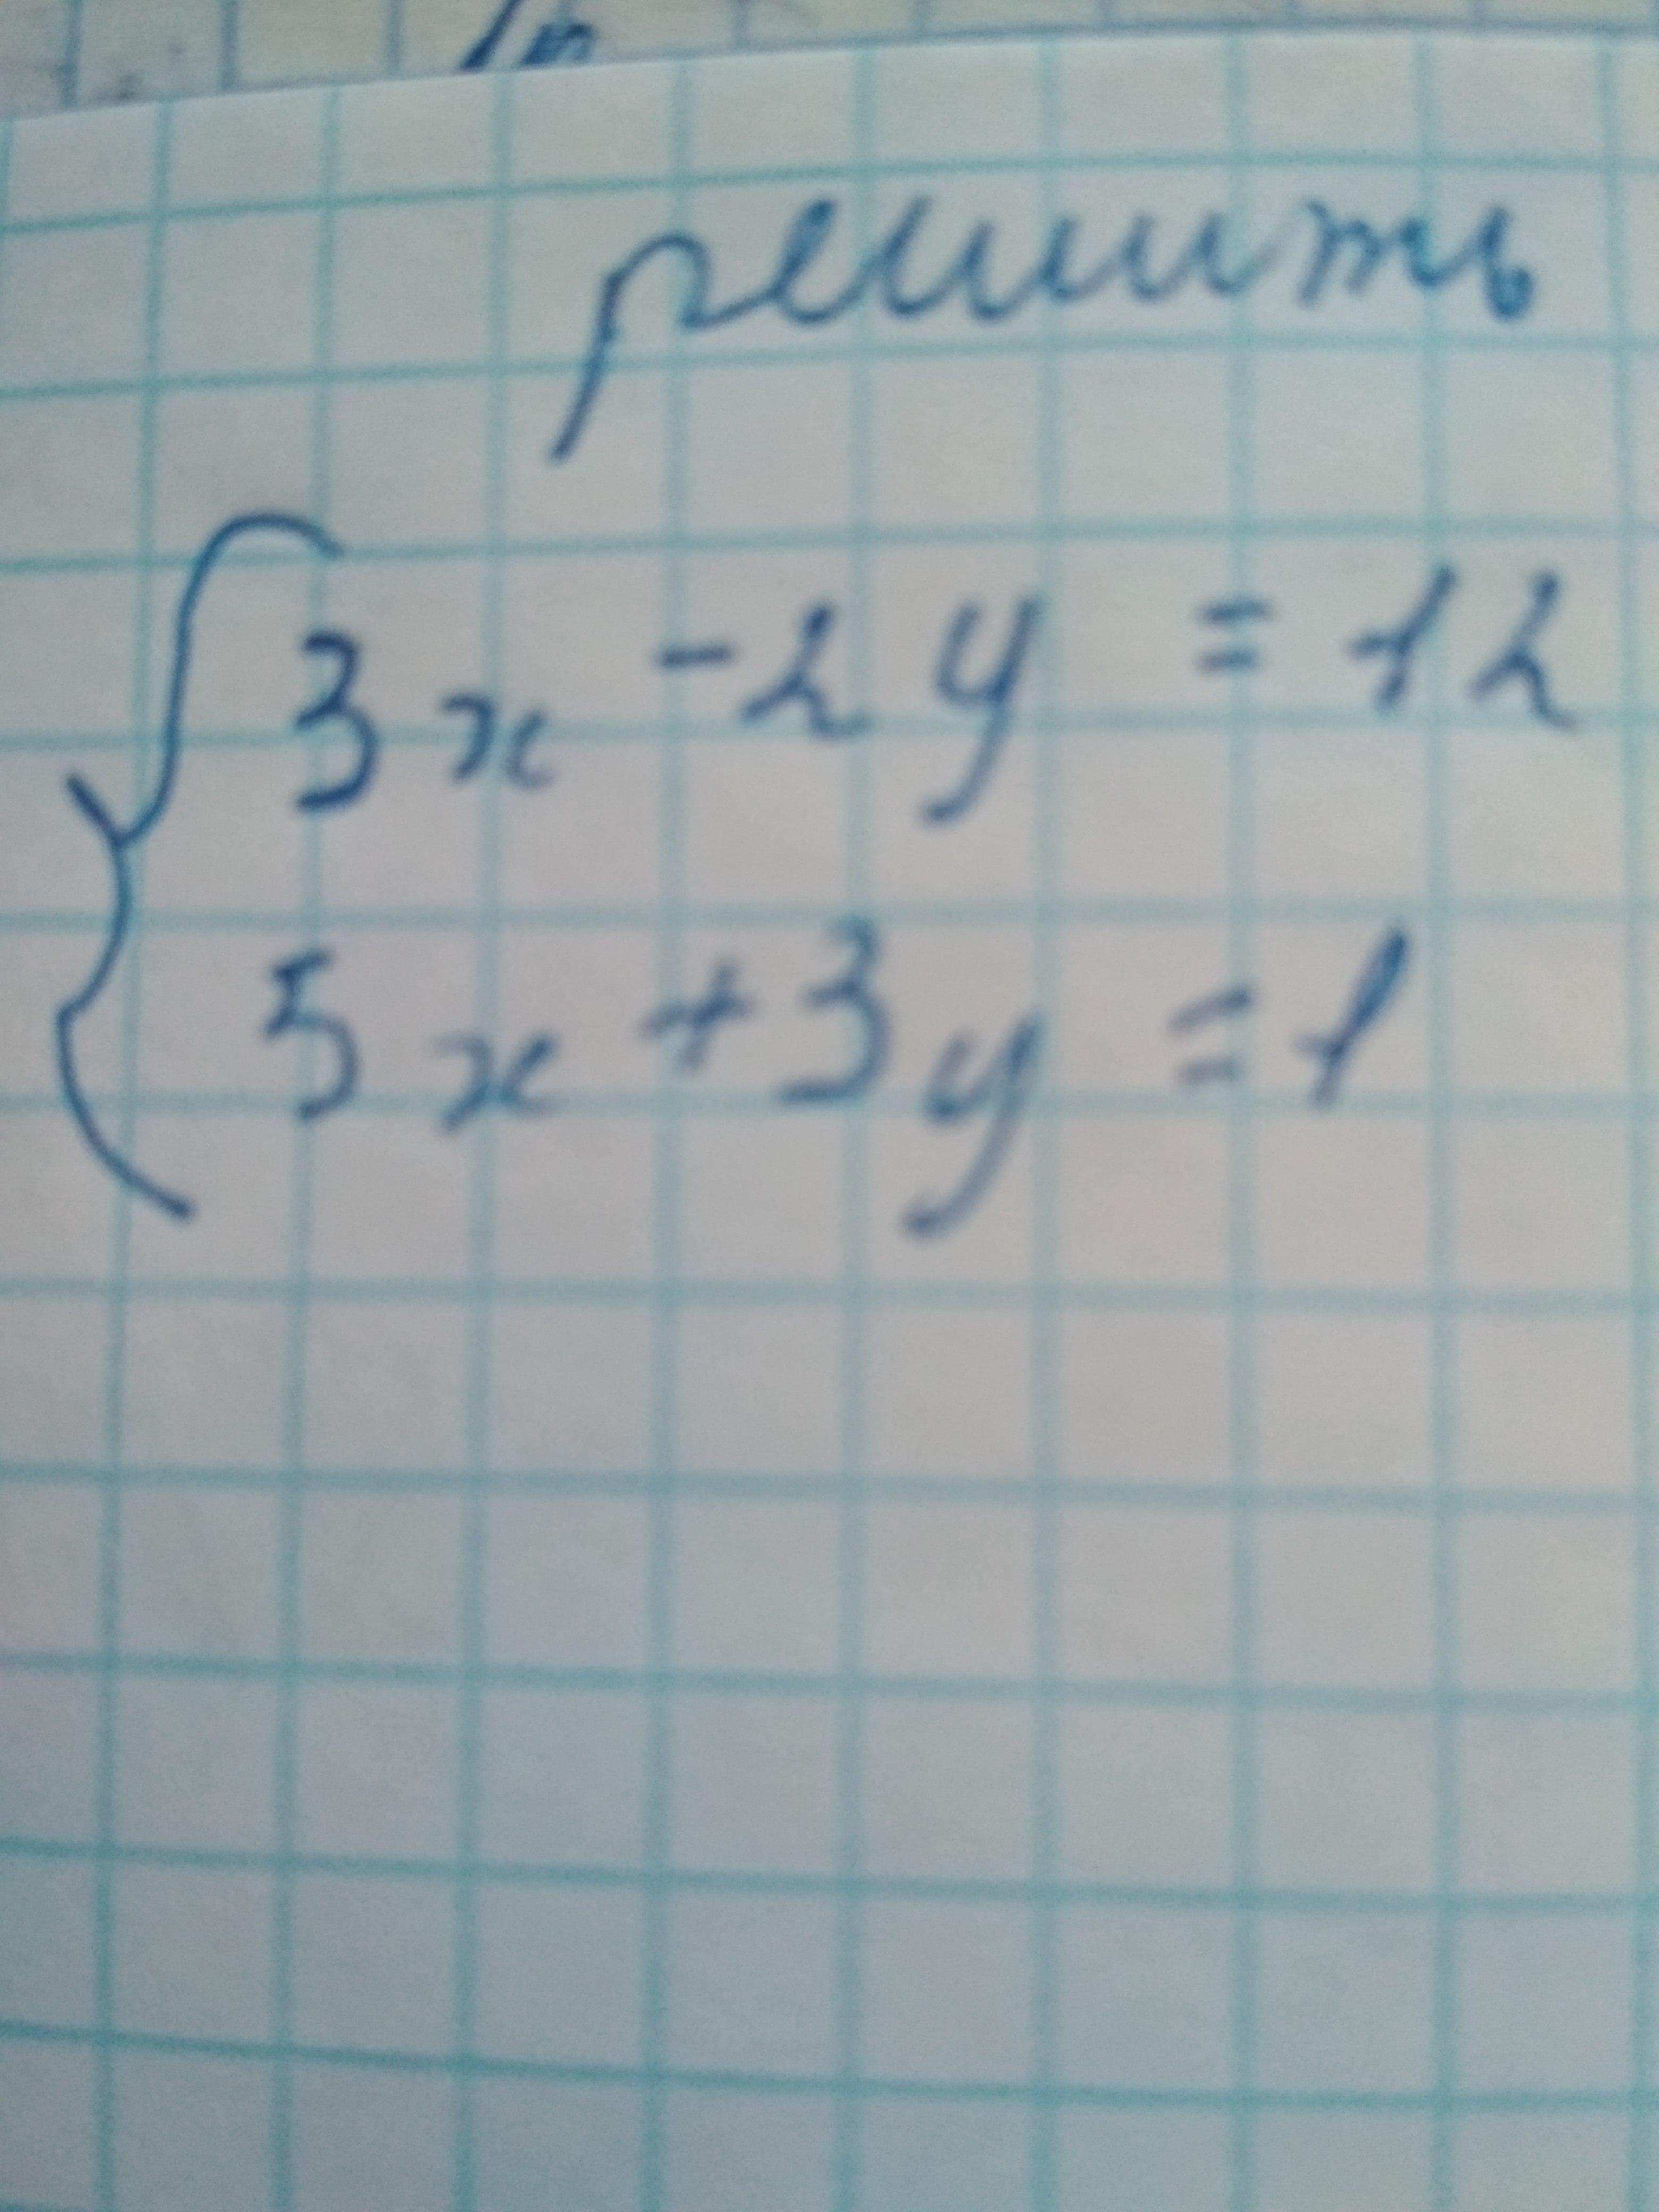 решить
3x - 2y = 12
5x + 3y = 1